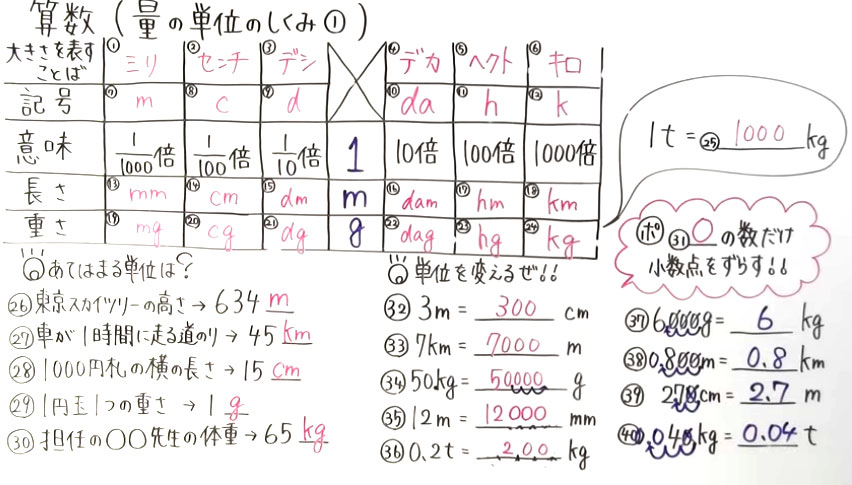 算数(量の単位のしくみ①)
大きさを表すことば ①ミリ ②センチ ③デシ ④デカ ⑤ヘクト ⑥キロ
記号 ⑦m ⑧c ⑨d ⑩da ⑪h ⑫k
意味 1/1000倍 1/100倍 1/10倍 1 10倍 100倍 1000倍
長さ ⑬mm ⑭cm ⑮dm m ⑯dam ⑰hm ⑱km
重さ ⑲mg ⑳cg ㉑dg g ㉒dag ㉓hg ㉔kg
1t=㉕1000kg
あてはまる単位は?
㉖東京スカイツリーの高さ→634m
㉗車が1時間に走る道のり→45km
㉘1000円札の横の長さ→15cm
㉙1円玉1つの重さ→1g
㉚担任の〇〇先生の体重→65kg
単位を変えるぜ!!
㉜3m=300cm
㉝7km=7000m
㉞50kg=50000g
㉟12m=12000mm
㊱0.2t=200kg
ポ ㉛0の数だけ
小数点をずらす!!
㊲6000g=6kg
㊳0.800m=0.8km
㊴270cm=2.7m
㊵0.040kg=0.04t